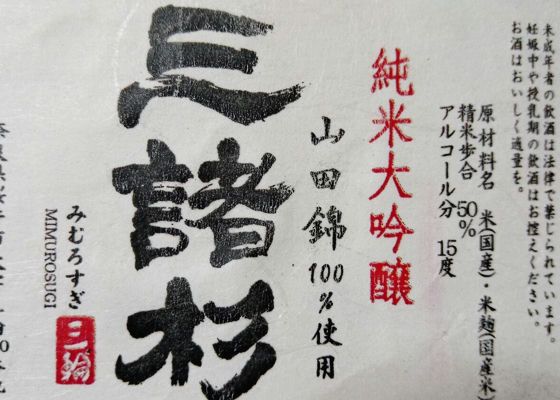 未成年者の飲酒は法律で禁じられています。
妊娠中や授乳期の飲酒はお控えください。
お酒はおいしく適量を。
原材料名 米(国産)・米麹(国産米)
精米歩合 50%
アルコール分 15度
純米大吟醸
山田錦100%使用
三諸杉
みむろすぎ
MIMUROSUGI
三輪